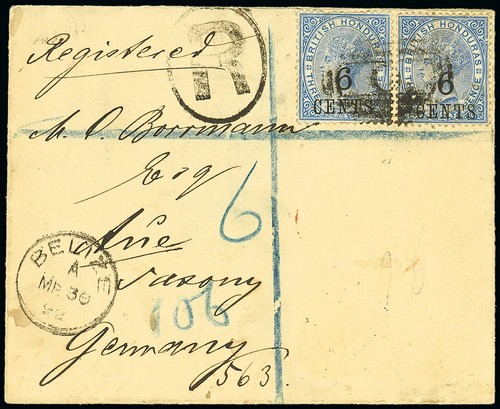 Registered
R
BRITISH HONDURAS
THREE PENCE
6
CENTS
BRITISH HONDURAS
PENCE
6
CENTS
M. O. Borrmann
Esq
6
Aue
BELIZE
A
MR 30
92
Saxony
106
Germany
563.